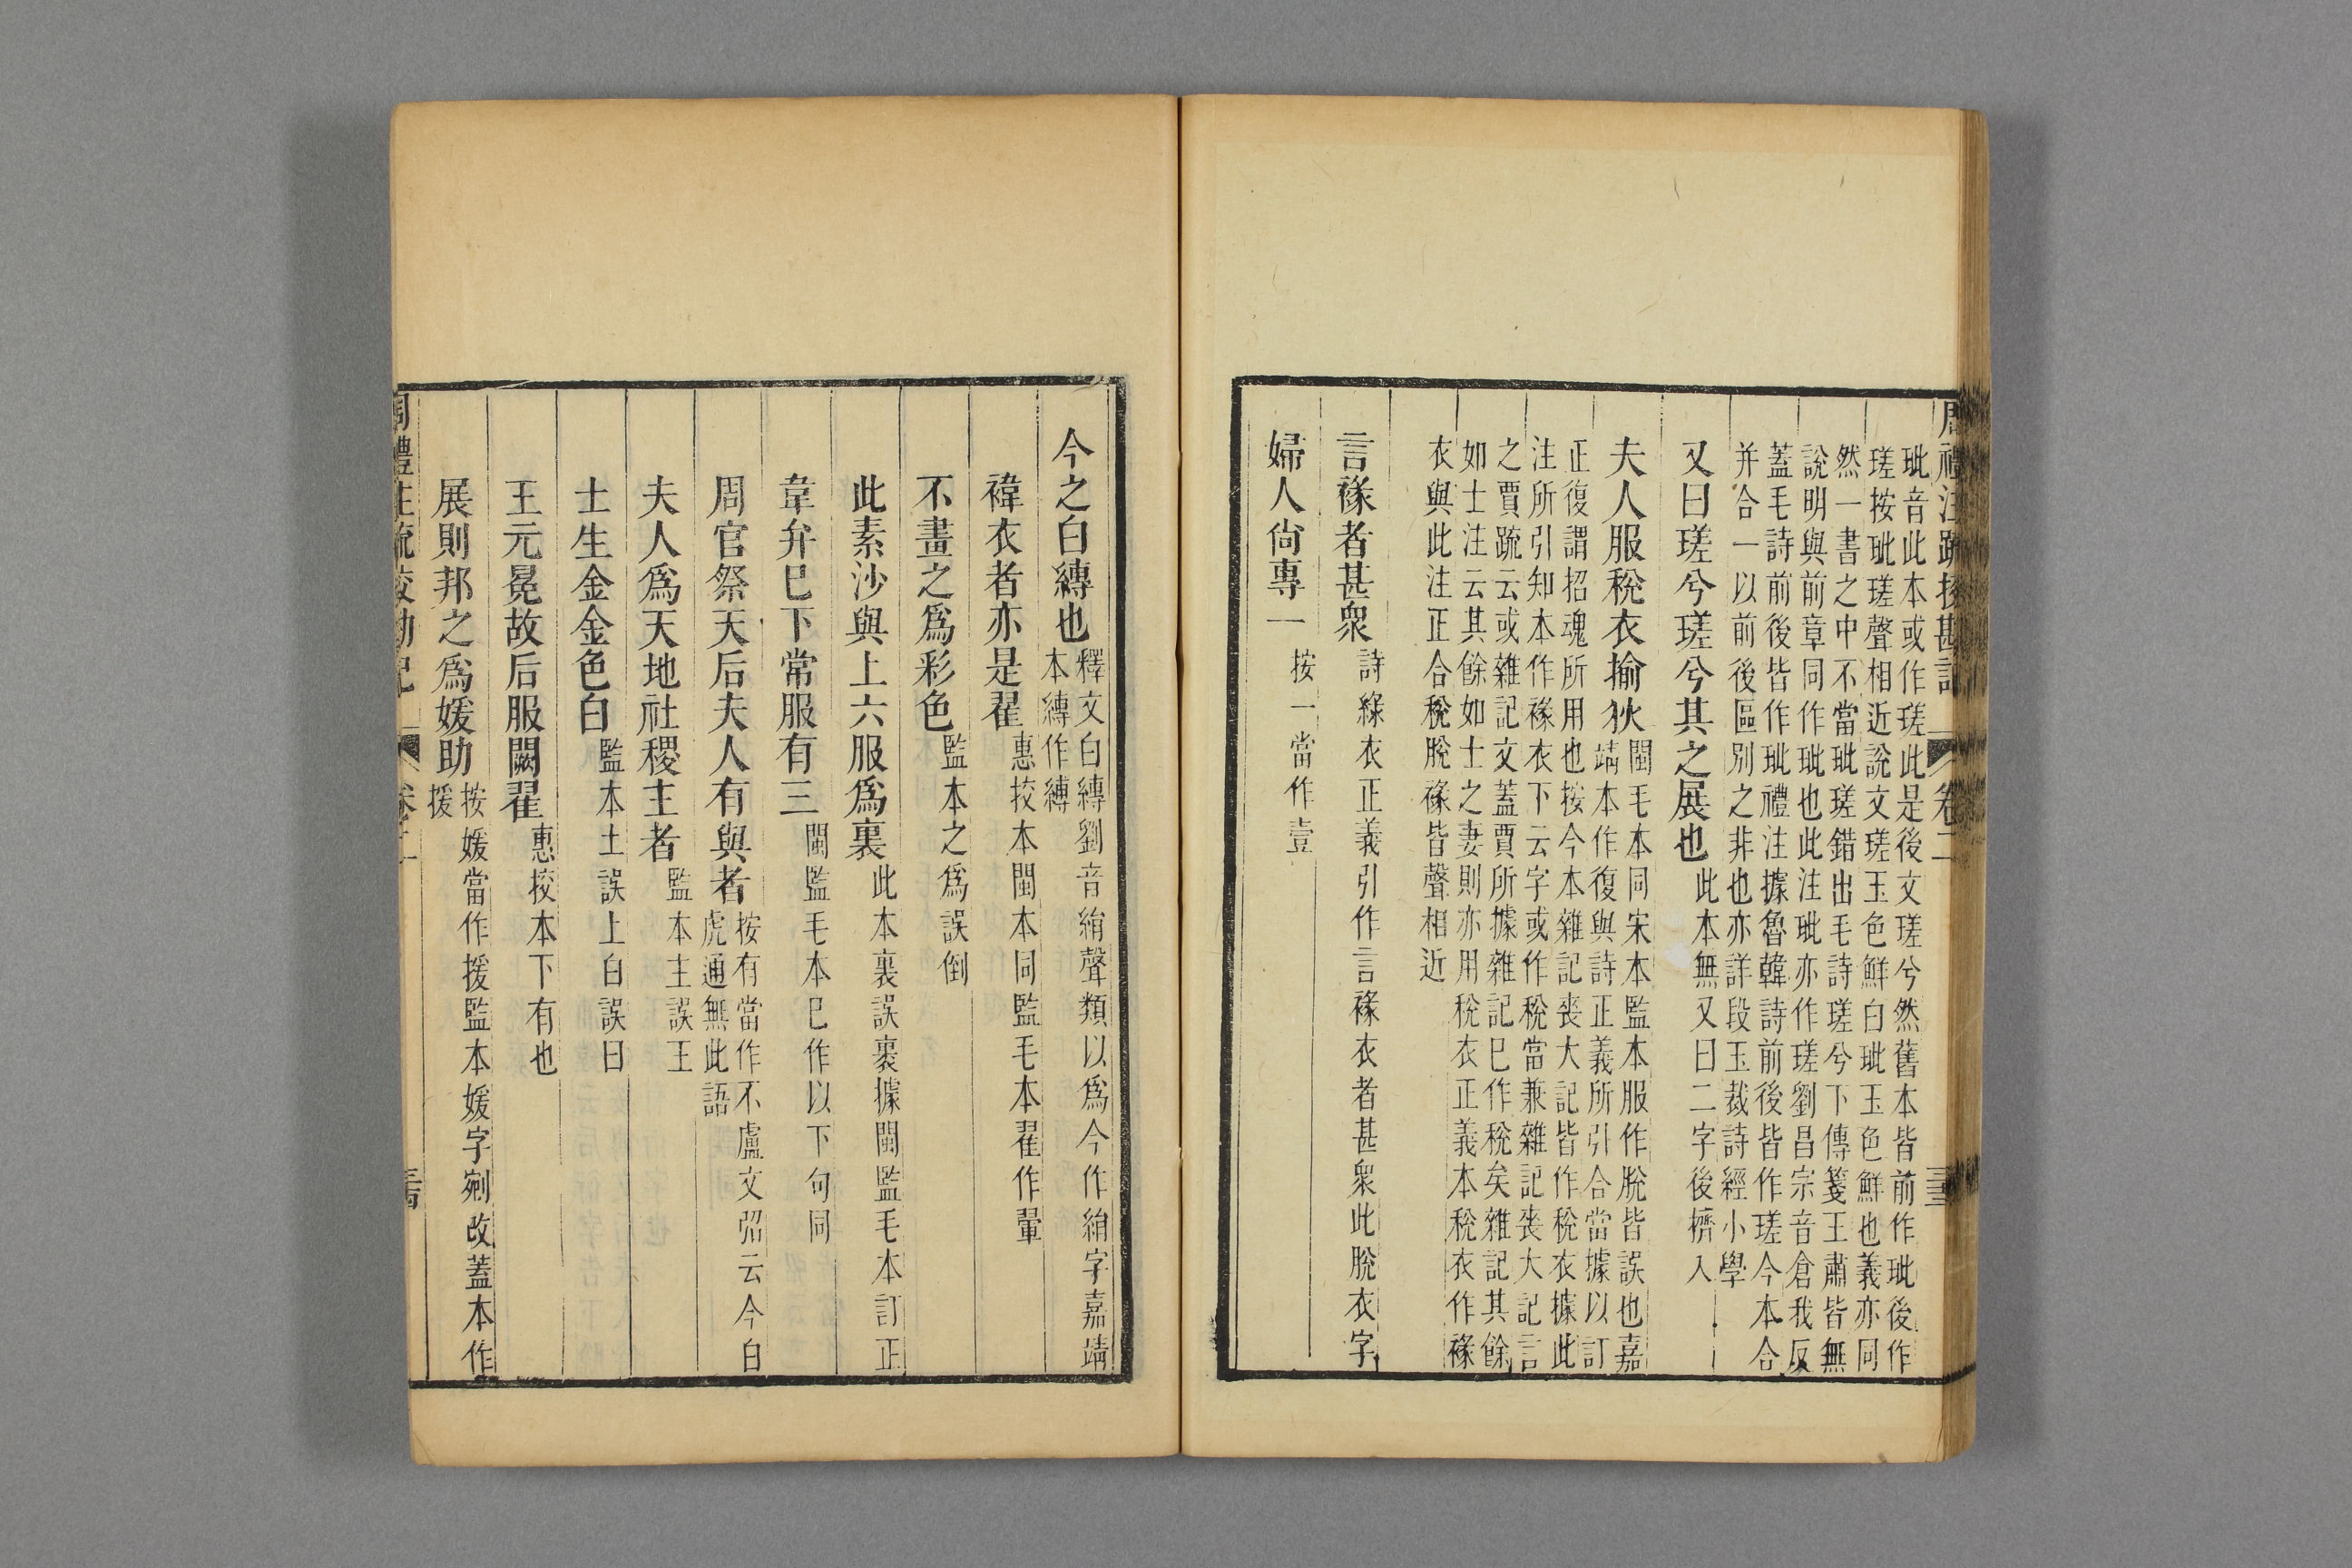 周禮注疏挍勘記 卷二
玼音此本或作瑳此是後文瑳兮然舊本皆前作玼後作
瑳按玼瑳聲相近說文瑳玉色鮮白玼玉色鮮也義亦同
然一書之中不當玼瑳錯出毛詩瑳兮下傳箋王肅皆無
說明與前章同作玼也此注玼亦作瑳劉昌宗音倉我反
蓋毛詩前後皆作玼禮注據魯韓詩前後皆作瑳今本合
并合一以前後區別之非也亦詳段玉裁詩經小學
又曰瑳兮瑳兮其之展也 此本無又曰二字後擠入
夫人服稅衣揄狄 閩毛本同宋本監本服作脫皆誤也嘉
靖本作復與詩正義所引合當據以訂
正復謂招魂所用也按今本雜記喪大記皆作稅衣據此
注所引知本作褖衣下云字或作稅當兼雜記喪大記言
之賈疏云或雜記文蓋賈所據雜記巳作稅矣雜記其餘
如士注云其餘如士之妻則亦用稅衣正義本稅衣作褖
衣與此注正合稅脫褖皆聲相近
言褖者甚衆 詩綠衣正義引作言褖衣者甚衆此脫衣字
婦人尙專一 按一當作壹
今之白縳也 釋文白縳劉音絹聲類以爲今作絹字嘉靖
本縳作縛
褘衣者亦是翟 惠挍本閩本同監毛本翟作翬
不畫之爲彩色 監本之爲誤倒
此素沙與上六服爲裏 此本裏誤裹據閩監毛本訂正
韋弁巳下常服有三 閩監毛本巳作以下句同
周官祭天后夫人有與者 按有當作不盧文弨云今白
虎通無此語
夫人爲天地社稷主者 監本主誤王
士生金金色白 監本土誤上白誤曰
王元冕故后服闕翟 惠挍本下有也
展則邦之爲媛助 按媛當作援監本媛字剜改蓋本作
援
周禮注疏挍勘記 卷二